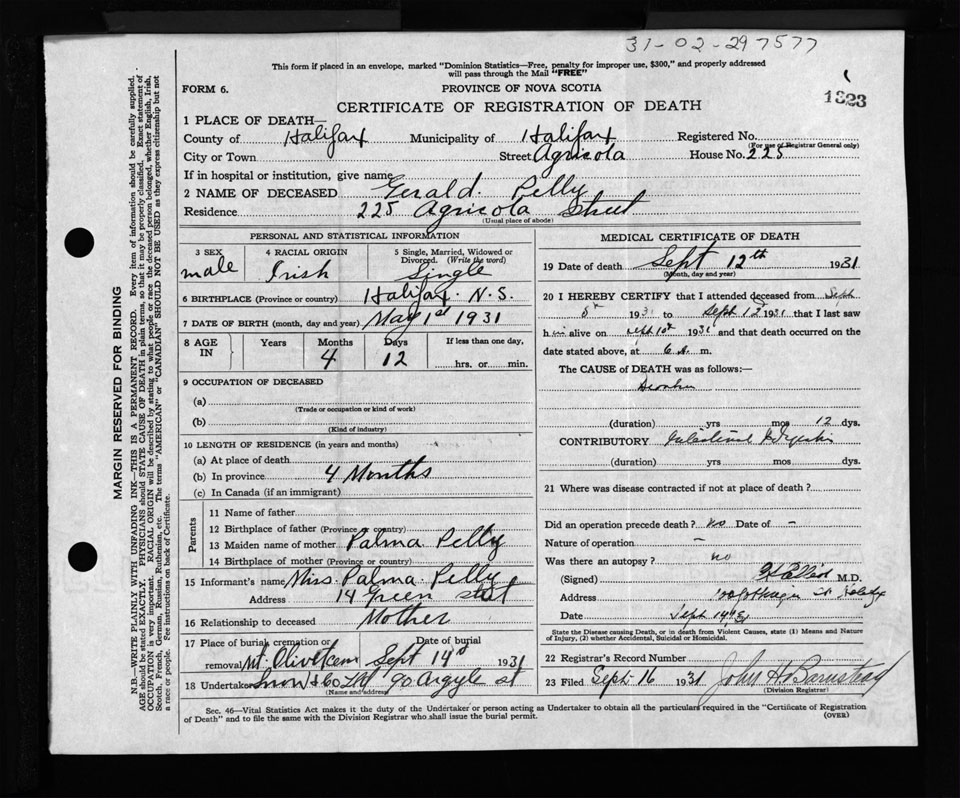 31-02-297577
This form if placed in an envelope, marked "Dominion Statistics—Free, penalty for improper use, $300," and properly addressed
will pass through the Mail "FREE"
FORM 6.
PROVINCE OF NOVA SCOTIA
1323
CERTIFICATE OF REGISTRATION OF DEATH
1 PLACE OF DEATH—
County of Halifax Municipality of Halifax Registered No.
(For use of Registrar General only)
City or Town Street Agricola House No. 225
If in hospital or institution, give name
2 NAME OF DECEASED Gerald Pelly
Residence 225 Agricola Street
(Usual place of abode)
PERSONAL AND STATISTICAL INFORMATION
3 SEX 4 RACIAL ORIGIN 5 Single, Married, Widowed or
Divorced. (Write the word)
male Irish Single
6 BIRTHPLACE (Province or country) Halifax N.S.
7 DATE OF BIRTH (month, day and year) May 1st 1931
8 AGE IN Years Months Days If less than one day,
4 12 hrs. or min.
9 OCCUPATION OF DECEASED
(a)
(Trade or occupation or kind of work)
(b)
(Kind of industry)
10 LENGTH OF RESIDENCE (in years and months)
(a) At place of death
(b) In province 4 Months
(c) In Canada (if an immigrant)
Parents
11 Name of father
12 Birthplace of father (Province or country)
13 Maiden name of mother Palma Pelly
14 Birthplace of mother (Province or country)
15 Informant's name Miss Palma Pelly
Address 14 Green street
16 Relationship to deceased Mother
17 Place of burial, cremation or Date of burial
removal Mt. Olivet cem Sept 14th 1931
18 Undertaker Snow & Co Ltd 90 Argyle st
(Name and address)
MEDICAL CERTIFICATE OF DEATH
19 Date of death Sept 12th 1931
(Month, day and year)
20 I HEREBY CERTIFY that I attended deceased from Sept
8th 1931 to Sept 12 1931 that I last saw
him alive on Sept 10th 1931 and that death occurred on the
date stated above, at 6 A. m.
The CAUSE of DEATH was as follows:—
(duration) yrs mos 12 dys.
CONTRIBUTORY
(duration) yrs mos dys.
21 Where was disease contracted if not at place of death?
Did an operation precede death? no Date of -
Nature of operation -
Was there an autopsy? no
(Signed) M.D.
Address
Date Sept 14th 31
State the Disease causing Death, or in death from Violent Causes, state (1) Means and Nature
of Injury, (2) whether Accidental, Suicidal or Homicidal.
22 Registrar's Record Number
23 Filed Sept. 16 1931 John H Barnstead
(Division Registrar)
Sec. 46—Vital Statistics Act makes it the duty of the Undertaker or person acting as Undertaker to obtain all the particulars required in the "Certificate of Registration
of Death" and to file the same with the Division Registrar who shall issue the burial permit.
(OVER)
MARGIN RESERVED FOR BINDING
N.B.—WRITE PLAINLY WITH UNFADING INK—THIS IS A PERMANENT RECORD. Every item of information should be carefully supplied.
AGE should be stated EXACTLY. PHYSICIANS should STATE CAUSE OF DEATH in plain terms, so that it may be properly classified. Exact statement of
OCCUPATION is very important. RACIAL ORIGIN will be described by stating to what people or race the deceased person belonged, whether English, Irish,
Scotch, French, German, Russian, Ruthenian, etc. The terms "AMERICAN" or "CANADIAN" SHOULD NOT BE USED as they express citizenship but not
a race or people. See instructions on back of Certificate.